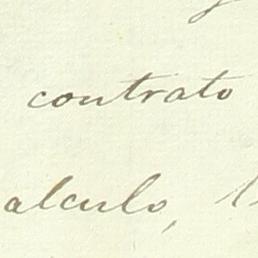 contrato
alculo,